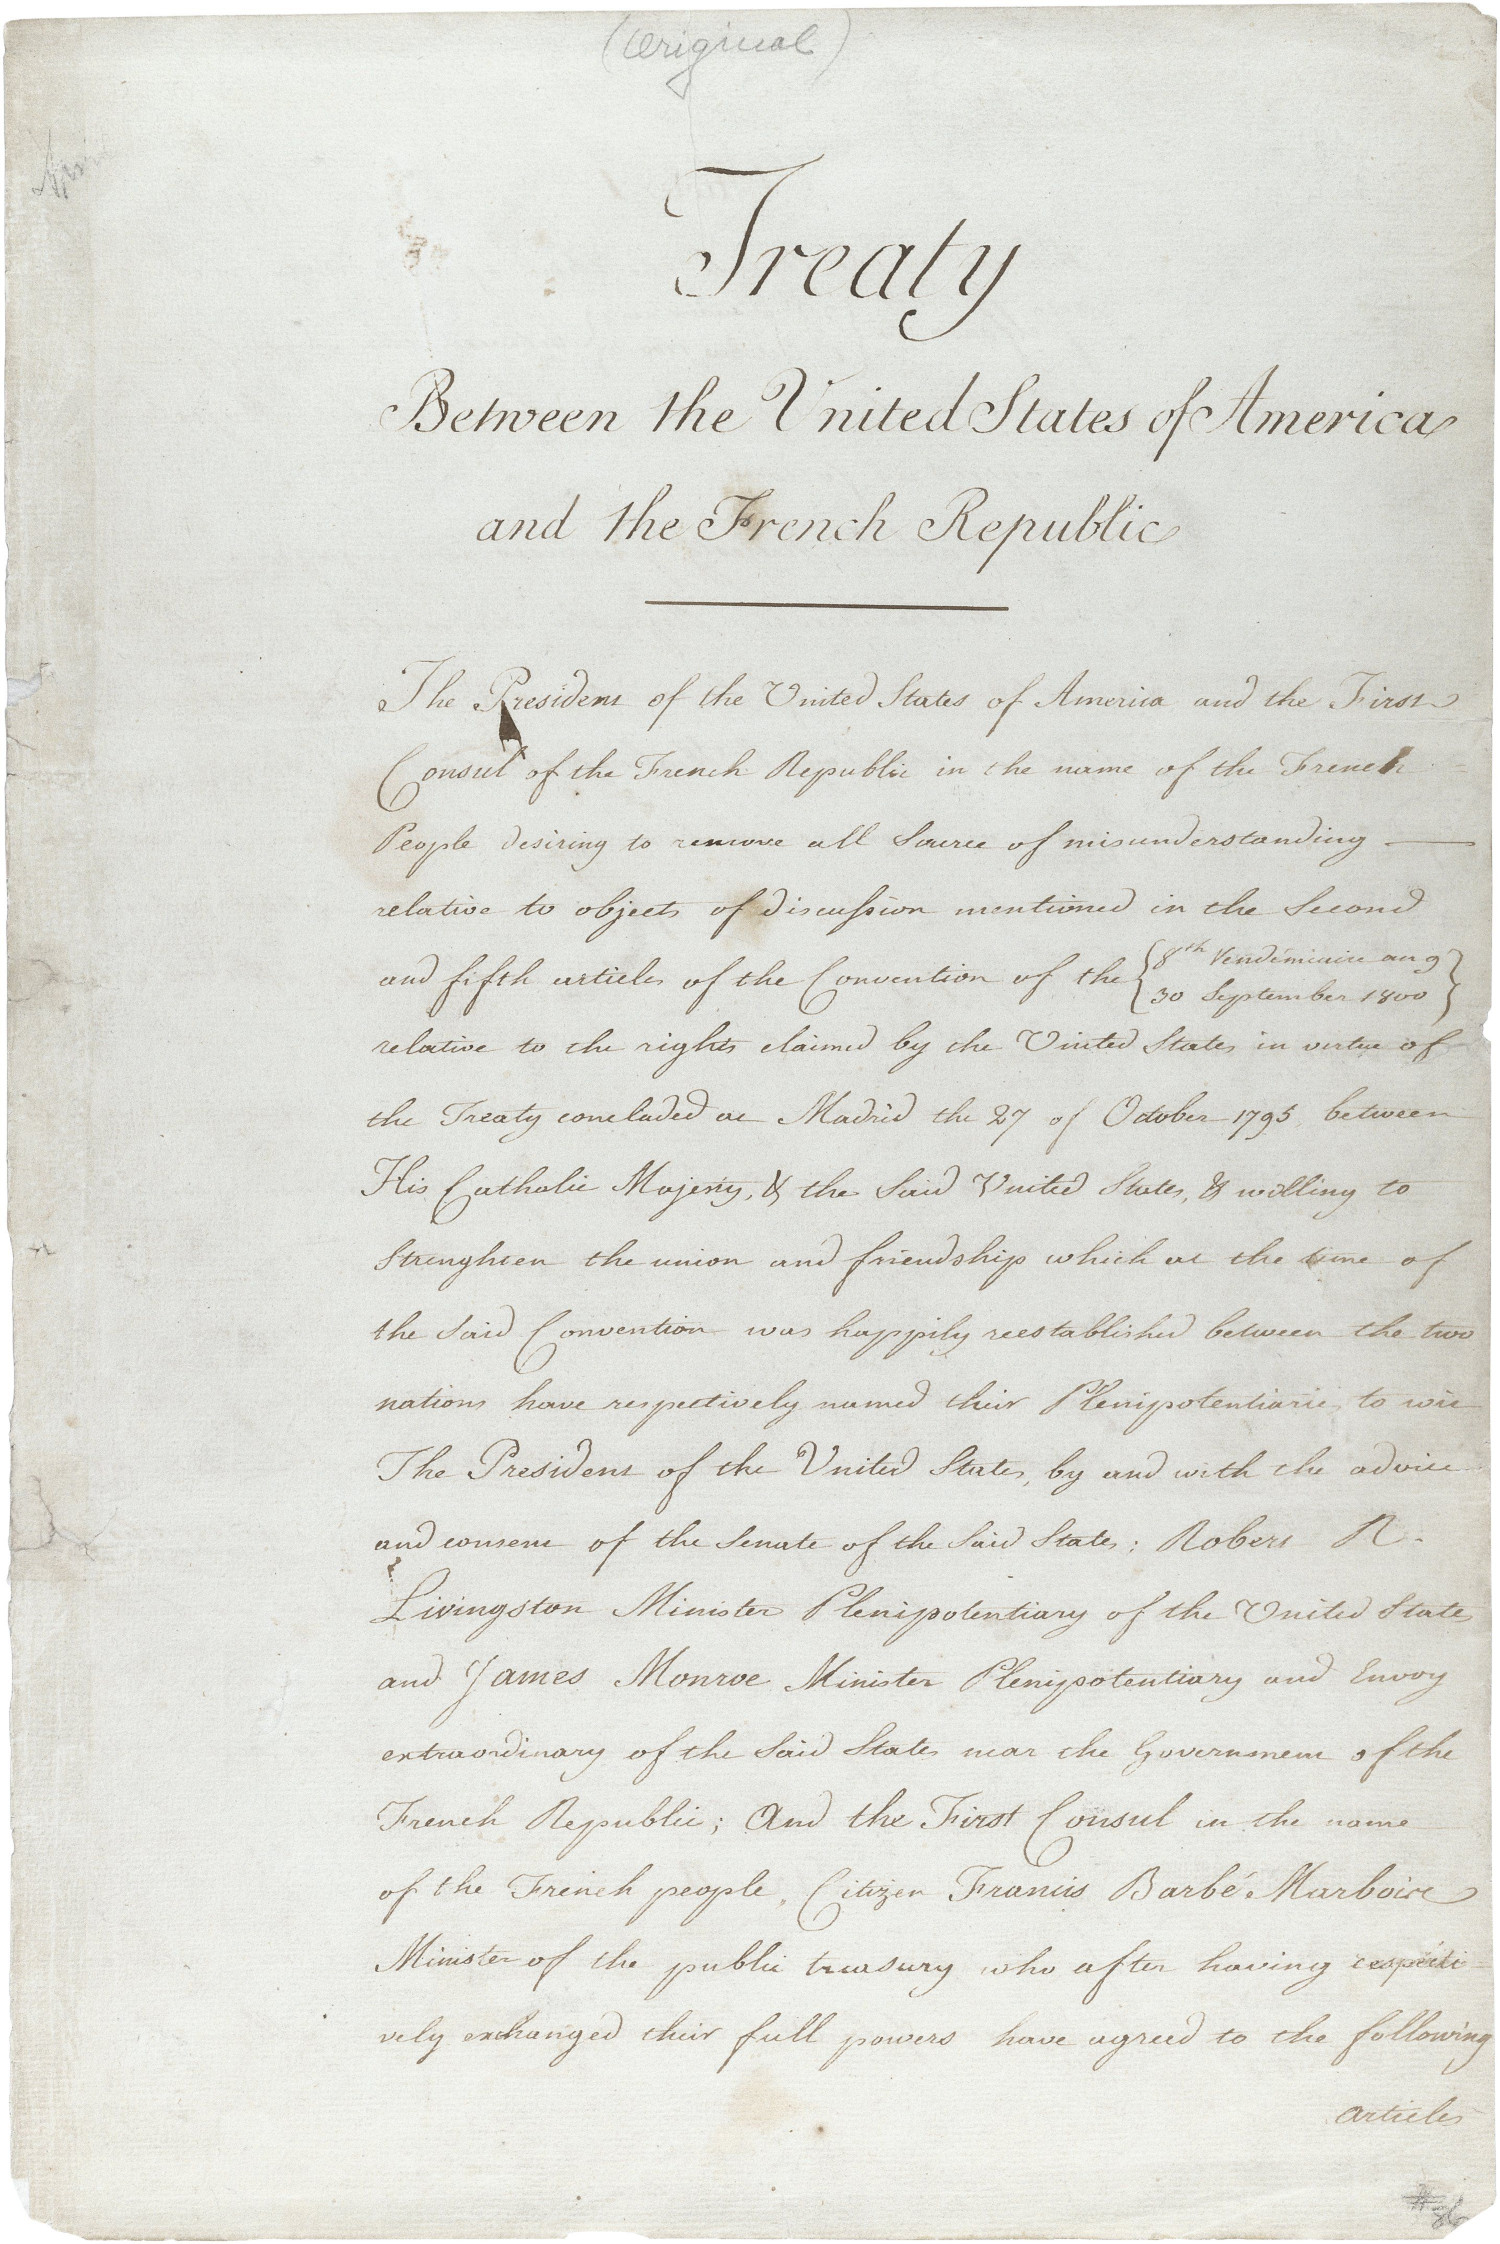 (Original)
Treaty
Between the United States of America
and the French Republic
The President of the United States of America and the First
Consul of the French Republic in the name of the French
People desiring to remove all Source of misunderstanding
relative to objects of discussion mentioned in the Second
and fifth articles of the Convention of the
8th Vendémiaire an 9
30 September 1800
relative to the rights claimed by the United States in virtue of
the Treaty concluded at Madrid the 27 of October 1795, between
His Catholic Majesty, & the Said United States, & willing to
Strenghten the union and friendship which at the time of
the Said Convention was happily reestablished between the two
nations have respectively named their Plenipotentiaries to wit
The President of the United States, by and with the advice
and consent of the Senate of the Said States; Robert R.
Livingston Minister Plenipotentiary of the United States
and James Monroe Minister Plenipotentiary and Envoy
extraordinary of the Said States near the Government of the
French Republic; And the First Consul in the name
of the French people, Citizen Francis Barbé Marbois
Minister of the public treasury who after having respecti
vely exchanged their full powers have agreed to the following
articles